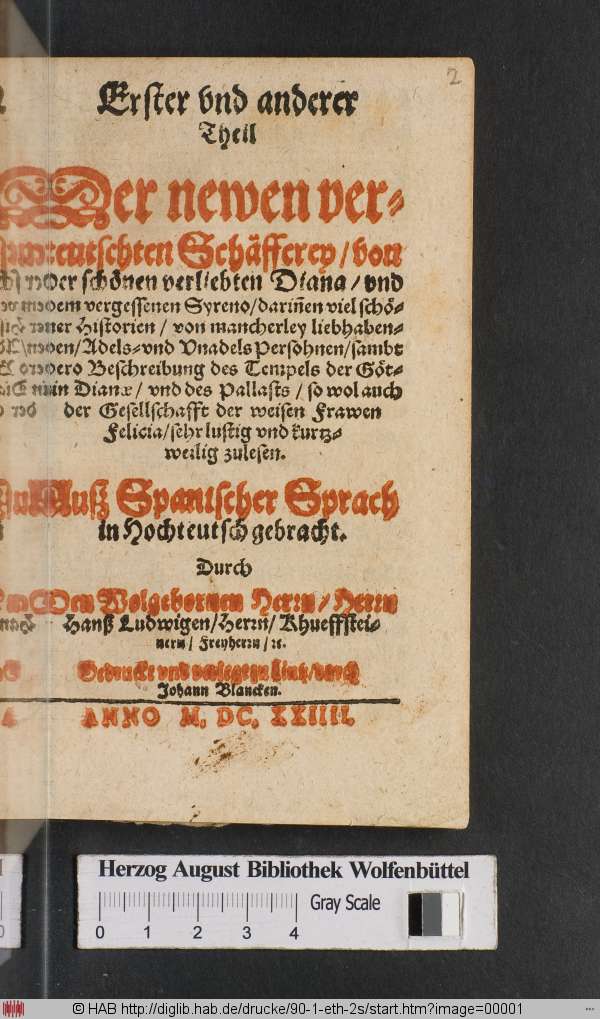 2
Erster vnd anderer
Theil
Der newen ver-
teutschten Schäfferey/ von
der schönen verliebten Diana/ vnd
dem vergessenen Syreno/ dariñen viel schö-
ner Historien/ von mancherley liebhaben-
den/ Adels- vnd Vnadels Persohnen/ sambt
der Beschreibung des Tempels der Göt-
tin Dianæ/ vnd des Pallasts/ so wol auch
der Gesellschafft der weisen Frawen
Felicia/ sehr lustig vnd kurtz-
weilig zulesen.
Auß Spanischer Sprach
in Hochteutsch gebracht.
Durch
Den Wolgebornen Herrn/ Herrn
Hanß Ludwigen/ Herrn/ Khueffstei-
nern/ Freyherrn/ ꝛc.
Gedruckt vnd verlegt zu Lintz/ durch
Johann Blancken.
ANNO M. DC. XXIIII.
Herzog August Bibliothek Wolfenbüttel
0 1 2 3 4 Gray Scale
© HAB http://diglib.hab.de/drucke/90-1-eth-2s/start.htm?image=00001